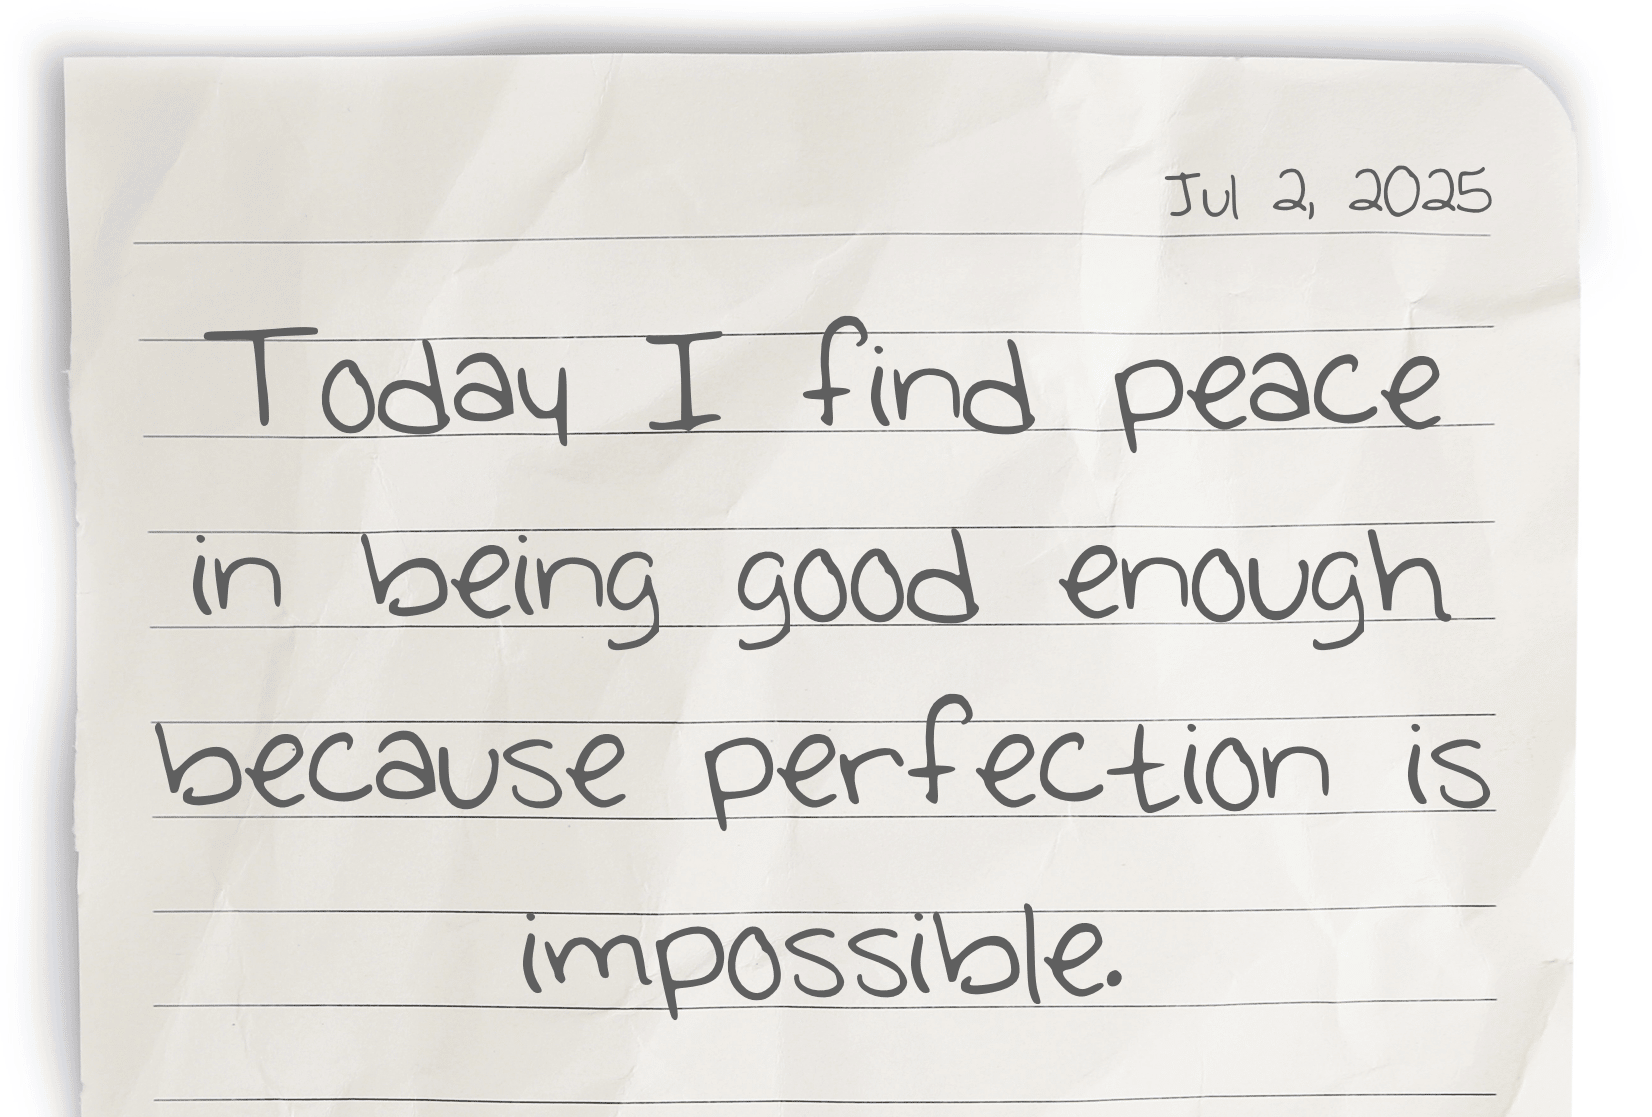 Jul 2, 2025
Today I find peace
in being good enough
because perfection is
impossible.